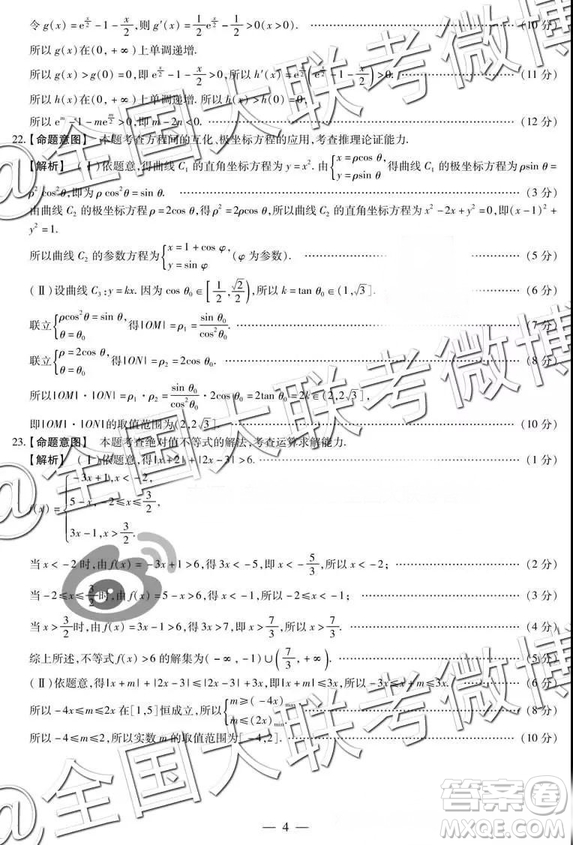 令g(x)=e^{x/2}-1-x/2,则g′(x)=1/2e^{x/2}-1/2>0(x>0). (10分)
所以g(x)在(0,+∞)上单调递增.
所以g(x)>g(0)=0,即e^{x/2}-1-x/2>0,所以h′(x)=e^{x/2}(e^{x/2}-1-x/2)>0. (11分)
所以h(x)在(0,+∞)上单调递增.所以h(x)>h(0)=0.
所以e^m-1-me^{m/2}>0,即m-2n<0. (12分)
22.【命题意图】 本题考查方程间的互化、极坐标方程的应用,考查推理论证能力.
【解析】 (Ⅰ)依题意,得曲线C₁的直角坐标方程为y=x².由{x=ρcos θ, y=ρsin θ,得曲线C₁的极坐标方程为ρsin θ=
ρ²cos²θ,即为ρcos²θ=sin θ. (3分)
由曲线C₂的极坐标方程ρ=2cos θ,得ρ²=2ρcos θ,所以曲线C₂的直角坐标方程为x²-2x+y²=0,即(x-1)²+
y²=1.
所以曲线C₂的参数方程为{x=1+cos φ, y=sin φ (φ为参数). (5分)
(Ⅱ)设曲线C₃:y=kx.因为cos θ₀∈[1/2,√2/2),所以k=tan θ₀∈(1,√3]. (6分)
联立{ρcos²θ=sin θ, θ=θ₀,得|OM|=ρ₁=sin θ₀/cos²θ₀. (7分)
联立{ρ=2cos θ, θ=θ₀,得|ON|=ρ₂=2cos θ₀. (8分)
所以|OM|·|ON|=ρ₁·ρ₂=sin θ₀/cos²θ₀·2cos θ₀=2tan θ₀=2k∈(2,2√3],
即|OM|·|ON|的取值范围为(2,2√3]. (10分)
23.【命题意图】 本题考查绝对值不等式的解法,考查运算求解能力.
【解析】 (Ⅰ)依题意,得|x+2|+|2x-3|>6. (1分)
f(x)={-3x+1,x<-2,
5-x,-2≤x≤3/2,
3x-1,x>3/2.
当x<-2时,由f(x)=-3x+1>6,得x<-5/3,所以x<-2; (2分)
当-2≤x≤3/2时,由f(x)=5-x>6,得x<-1,所以-2≤x<-1; (3分)
当x>3/2时,由f(x)=3x-1>6,得3x>7,即x>7/3,所以x>7/3. (4分)
综上所述,不等式f(x)>6的解集为(-∞,-1)∪(7/3,+∞). (5分)
(Ⅱ)依题意,得|x+m|+|2x-3|≤|2x-3|+3x,即|x+m|≤3x,即-3x≤x+m≤3x. (6分)
所以-4x≤m≤2x在[1,5]恒成立,所以{m≥(-4x)max, m≤(2x)min. (8分)
所以-4≤m≤2,所以实数m的取值范围为[-4,2]. (10分)
— 4 —
@全国大联考微博
@全国大联考微博
@全国大联考微博
答案圈
MXQE.COM